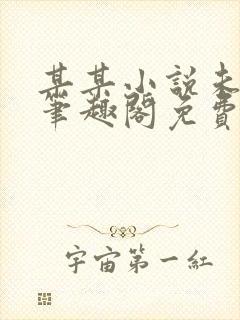 某某小説未
筆趣閣免費
宇宙第一紅